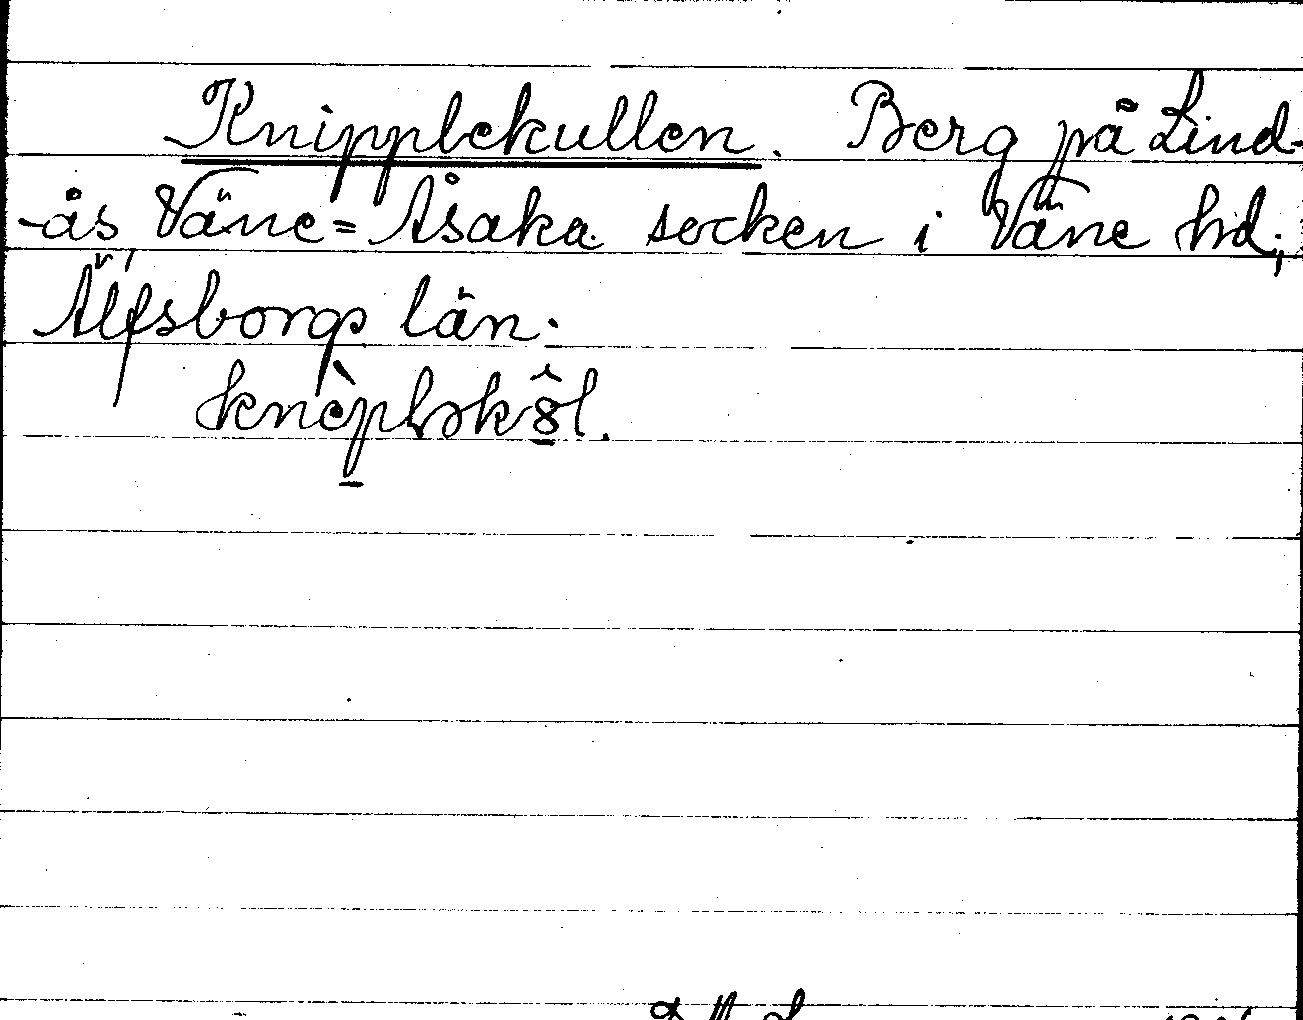 Knipplekullen. Berg på Lind-
-ås Väne=Åsaka socken i Väne hd,
Älfsborgs län.